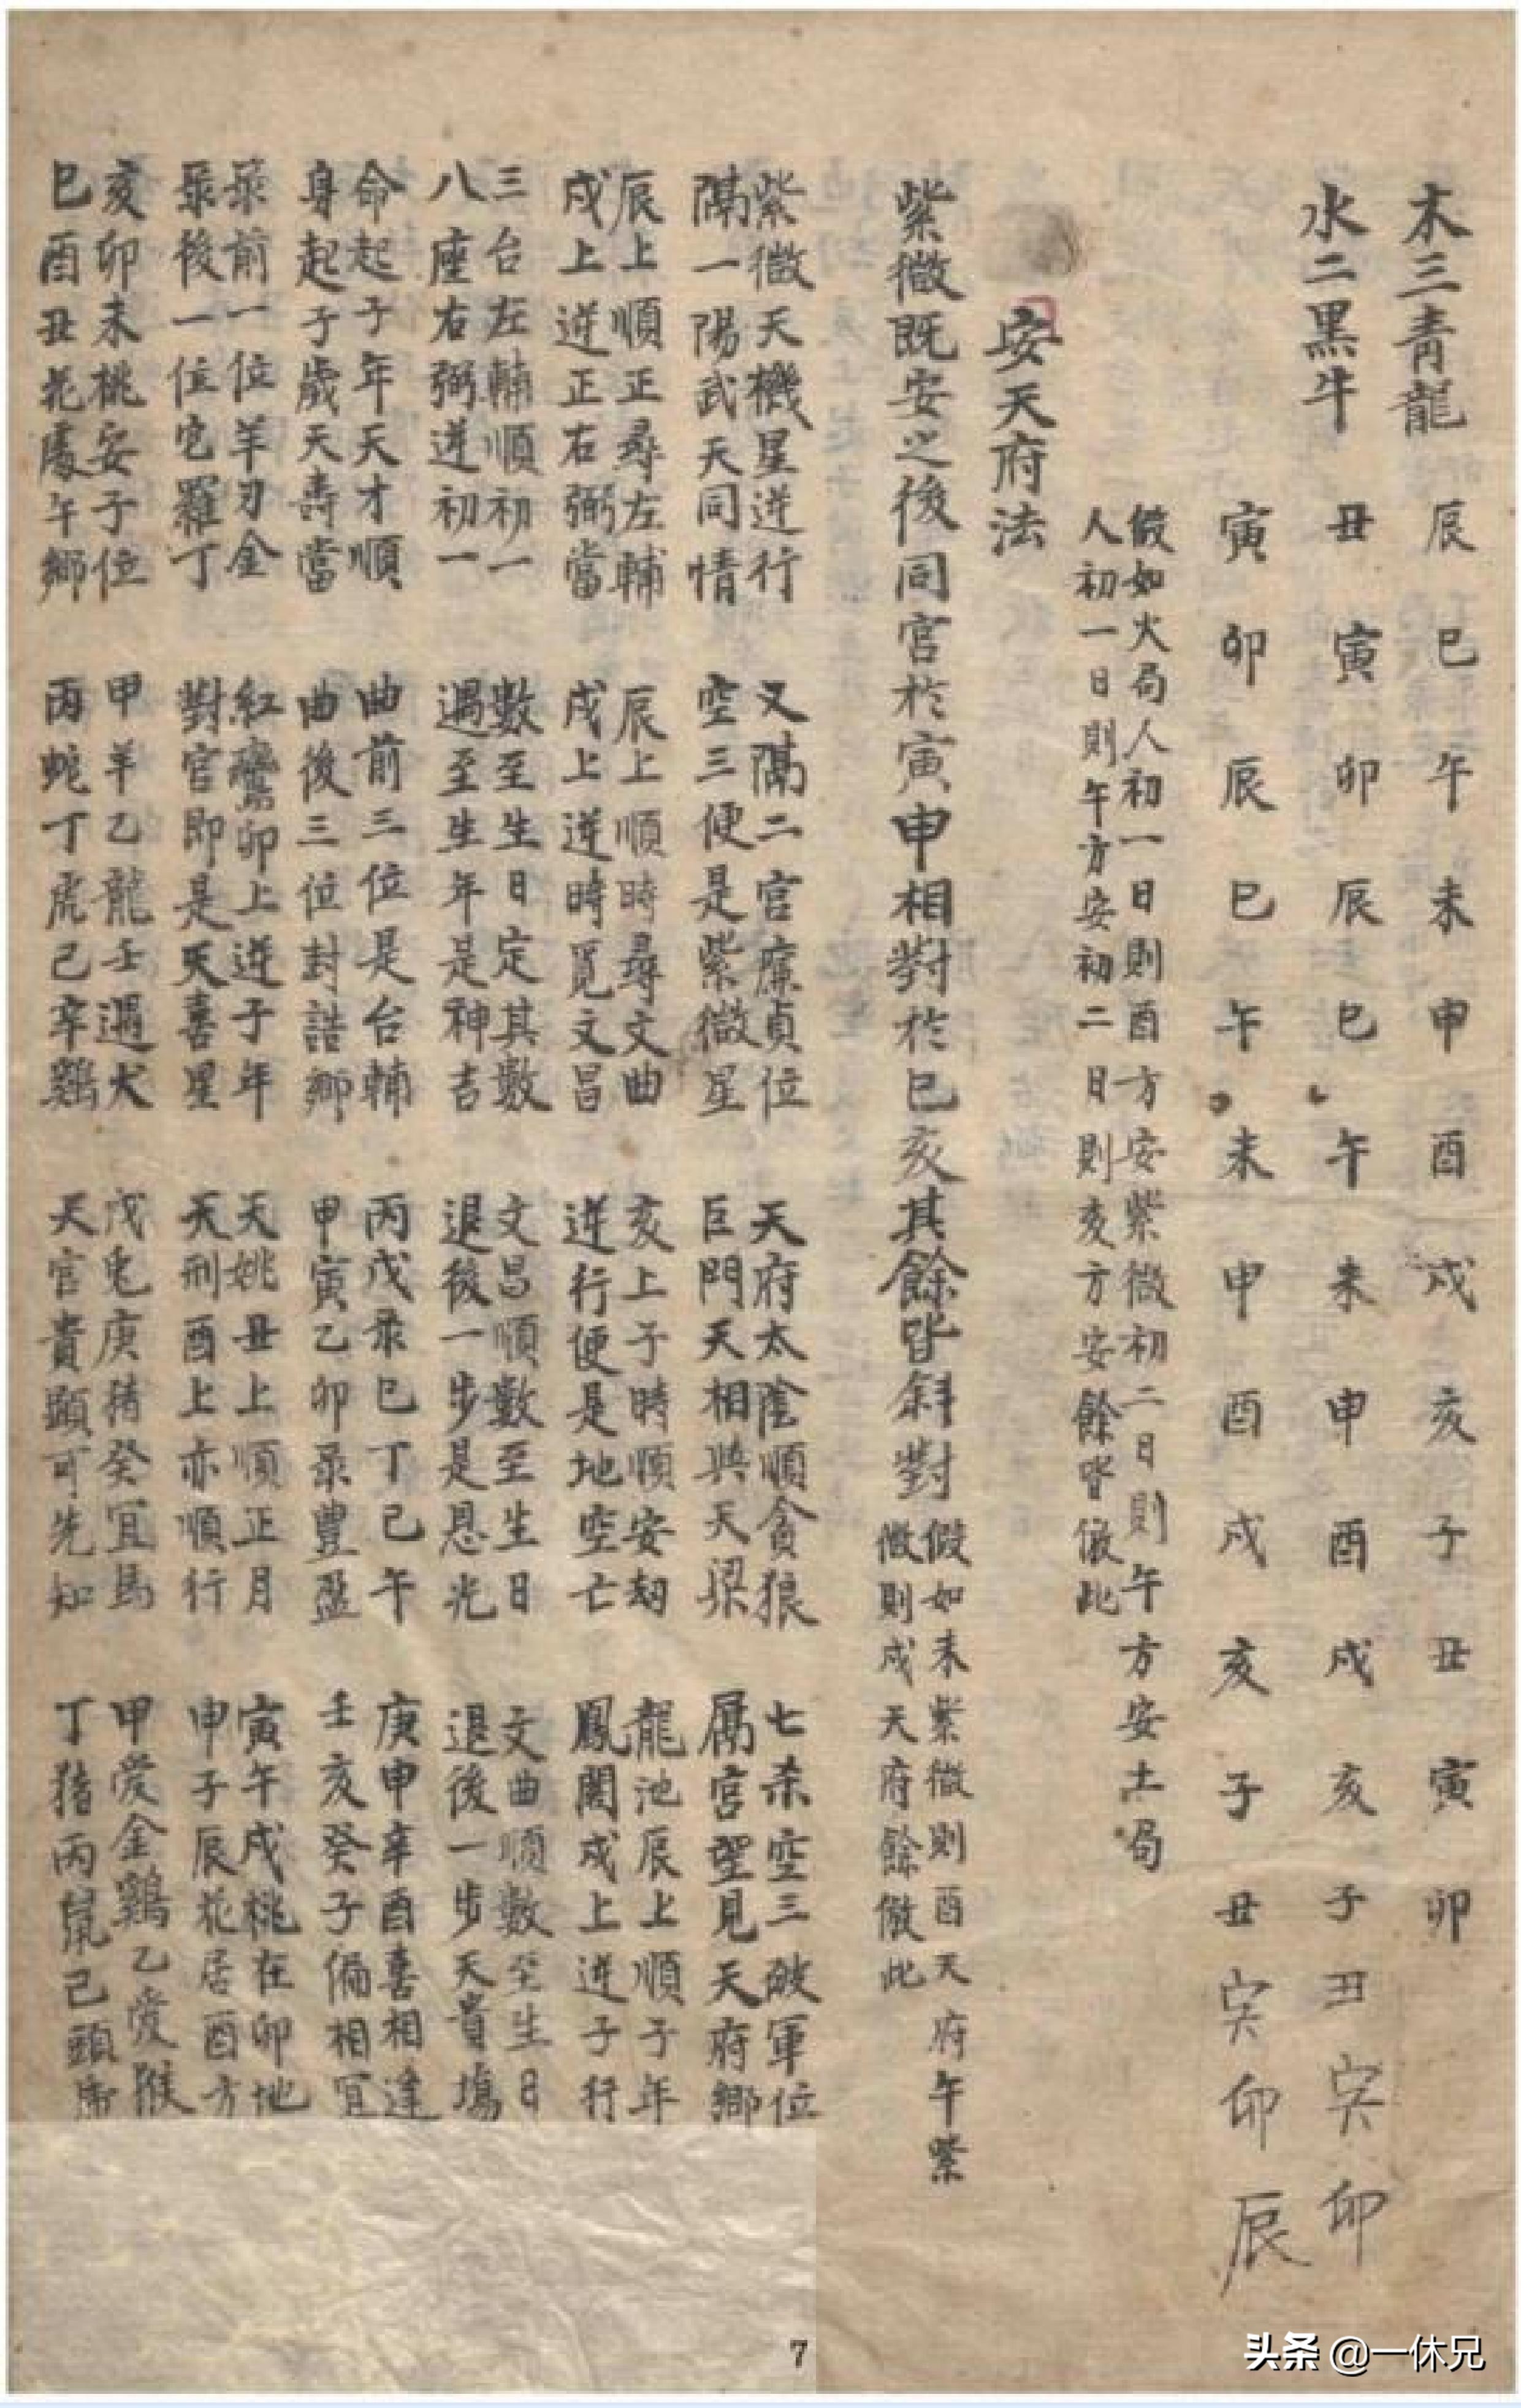 木三青龍 辰巳午未申酉戌亥子丑寅卯
水二黑牛 丑寅卯辰巳午未申酉戌亥子丑寅卯
寅卯辰巳午未申酉戌亥子丑寅卯辰
假如火局人初一日則酉方安紫微初二日則午方安土局
人初一日則午方安初二日則亥方安餘皆倣此
安天府法
紫微既安之後同宮於寅申相對於巳亥其餘皆斜對
假如未紫微則酉天府午紫
微則戌天府餘倣此
紫微天機星逆行
隔一陽武天同情
又隔二宮廉貞位
空三便是紫微星
天府太陰順貪狼
巨門天相與天梁
七杀空三破軍位
隔宮望見天府鄉
辰上順正尋左輔
戌上逆正右弼當
辰上順時尋文曲
戌上逆時覓文昌
亥上子時順安劫
逆行便是地空亡
龍池辰上順子年
鳳閣戌上逆子行
三台左輔順初一
八座右弼逆初一
數至生日定其數
遇至生年是神吉
文昌順數至生日
退後一步是恩光
文曲順數至生日
退後一步天貴場
命起子年天才順
身起子歲天壽當
曲前三位是台輔
曲後三位封誥鄉
丙戊彔巳丁己午
甲寅乙卯彔豐盈
庚申辛酉喜相逢
壬亥癸子偏相宜
彔前一位羊刃金
彔後一位它羅丁
紅鸞卯上逆子年
對宮即是天喜星
天姚丑上順正月
天刑酉上亦順行
寅午戌桃在卯地
申子辰花居酉方
亥卯未桃安子位
巳酉丑花處午鄉
甲羊乙龍壬遇犬
丙蛇丁虎己辛鷄
戊兎庚猪癸宜馬
天官貴顯可先知
甲愛金鷄乙愛猴
丁猪丙鼠己頭虎
7
头条 @一休兄